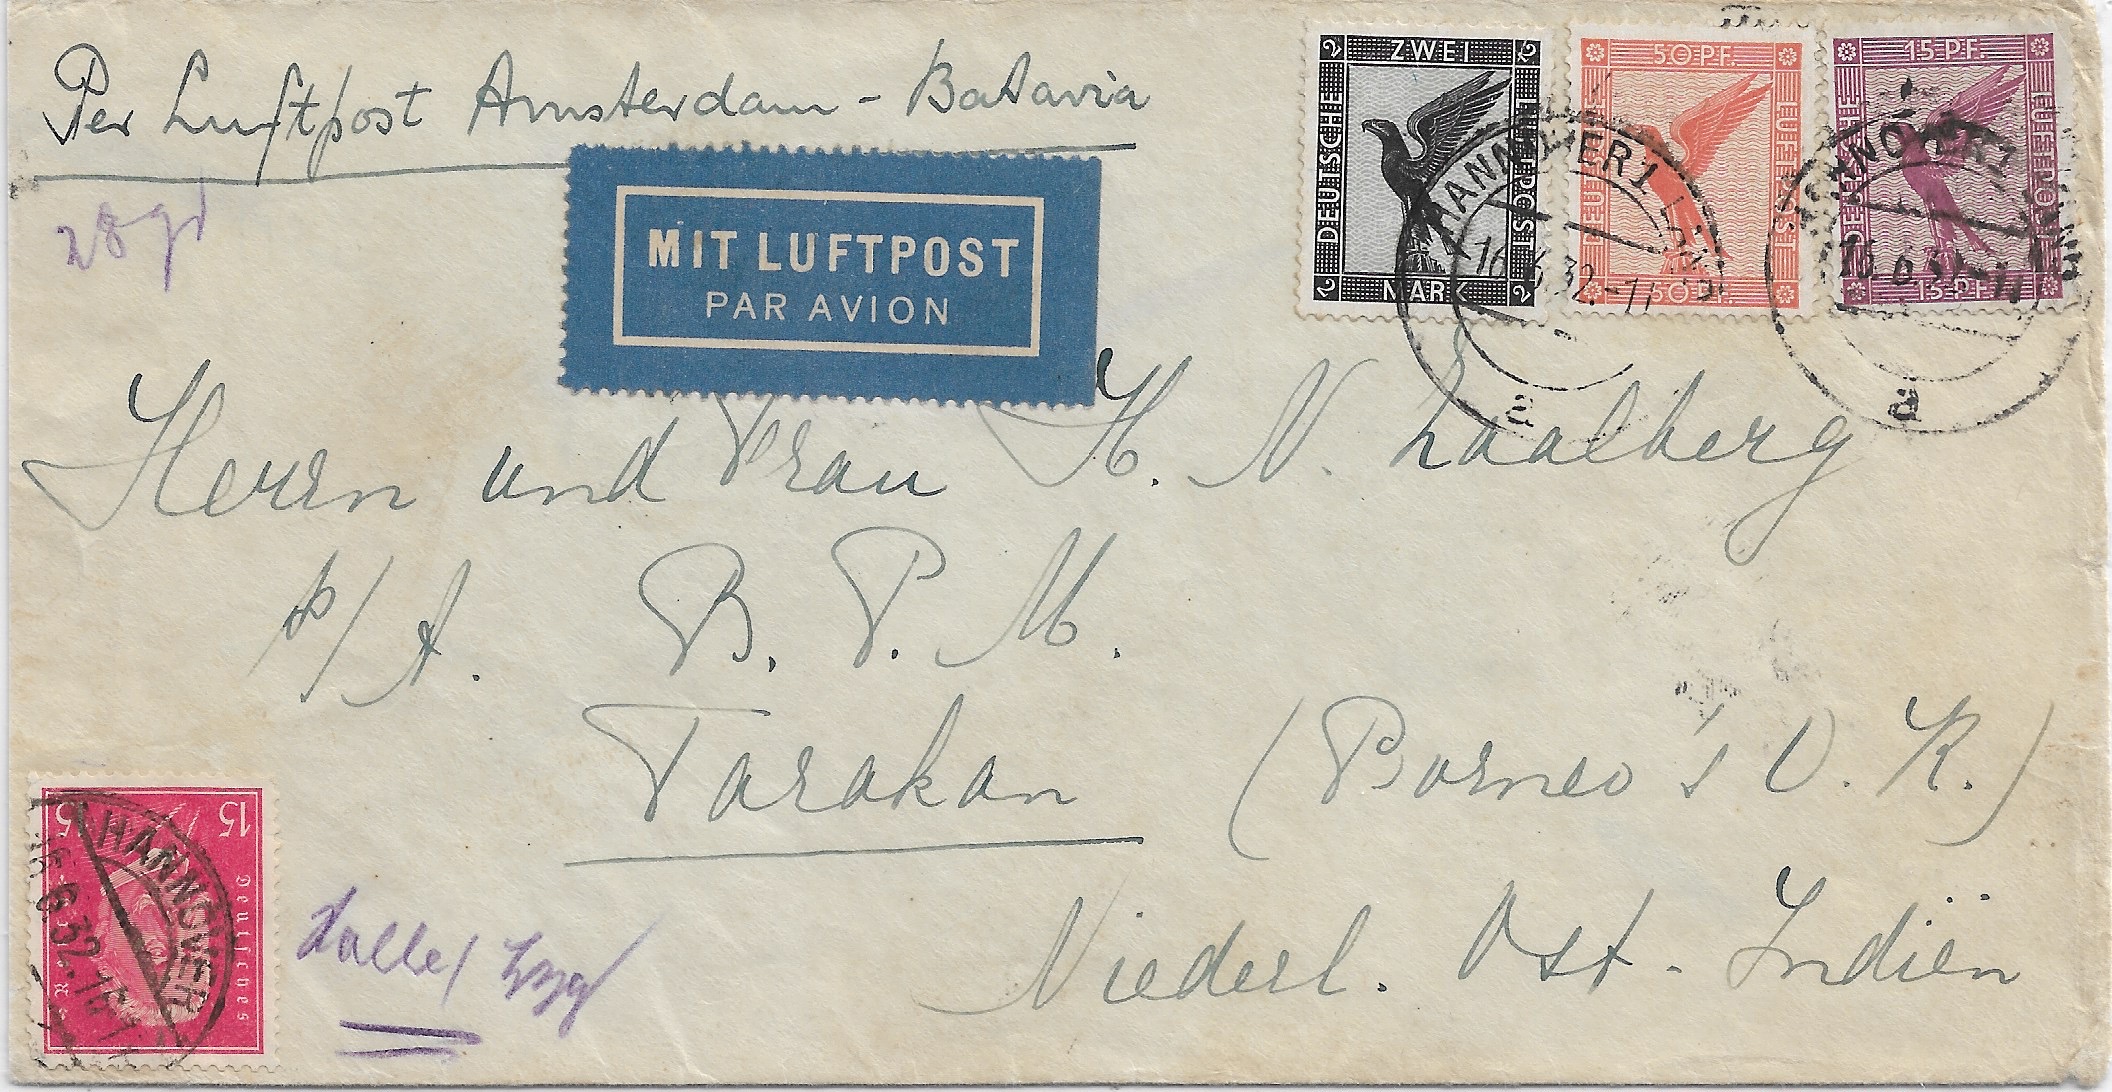 Per Luftpost Amsterdam - Batavia
28 gr
MIT LUFTPOST
PAR AVION
ZWEI
DEUTSCHE
LUFTPOST
MARK
2 2
2 2
50 PF.
DEUTSCHE
LUFTPOST
50 PF.
15 PF.
DEUTSCHE
LUFTPOST
15 PF.
HANNOVER 1
16.6.32.-17
a
HANNOVER 1
16.6.32.-17
a
Herrn und Frau H. N. Laalberg
p/A. B. P. M.
Tarakan (Borneo's O. K.)
Niederl. Ost-Indiën
15 15
Deutsches
HANNOVER
16.6.32.-16
Halle/Lpzg